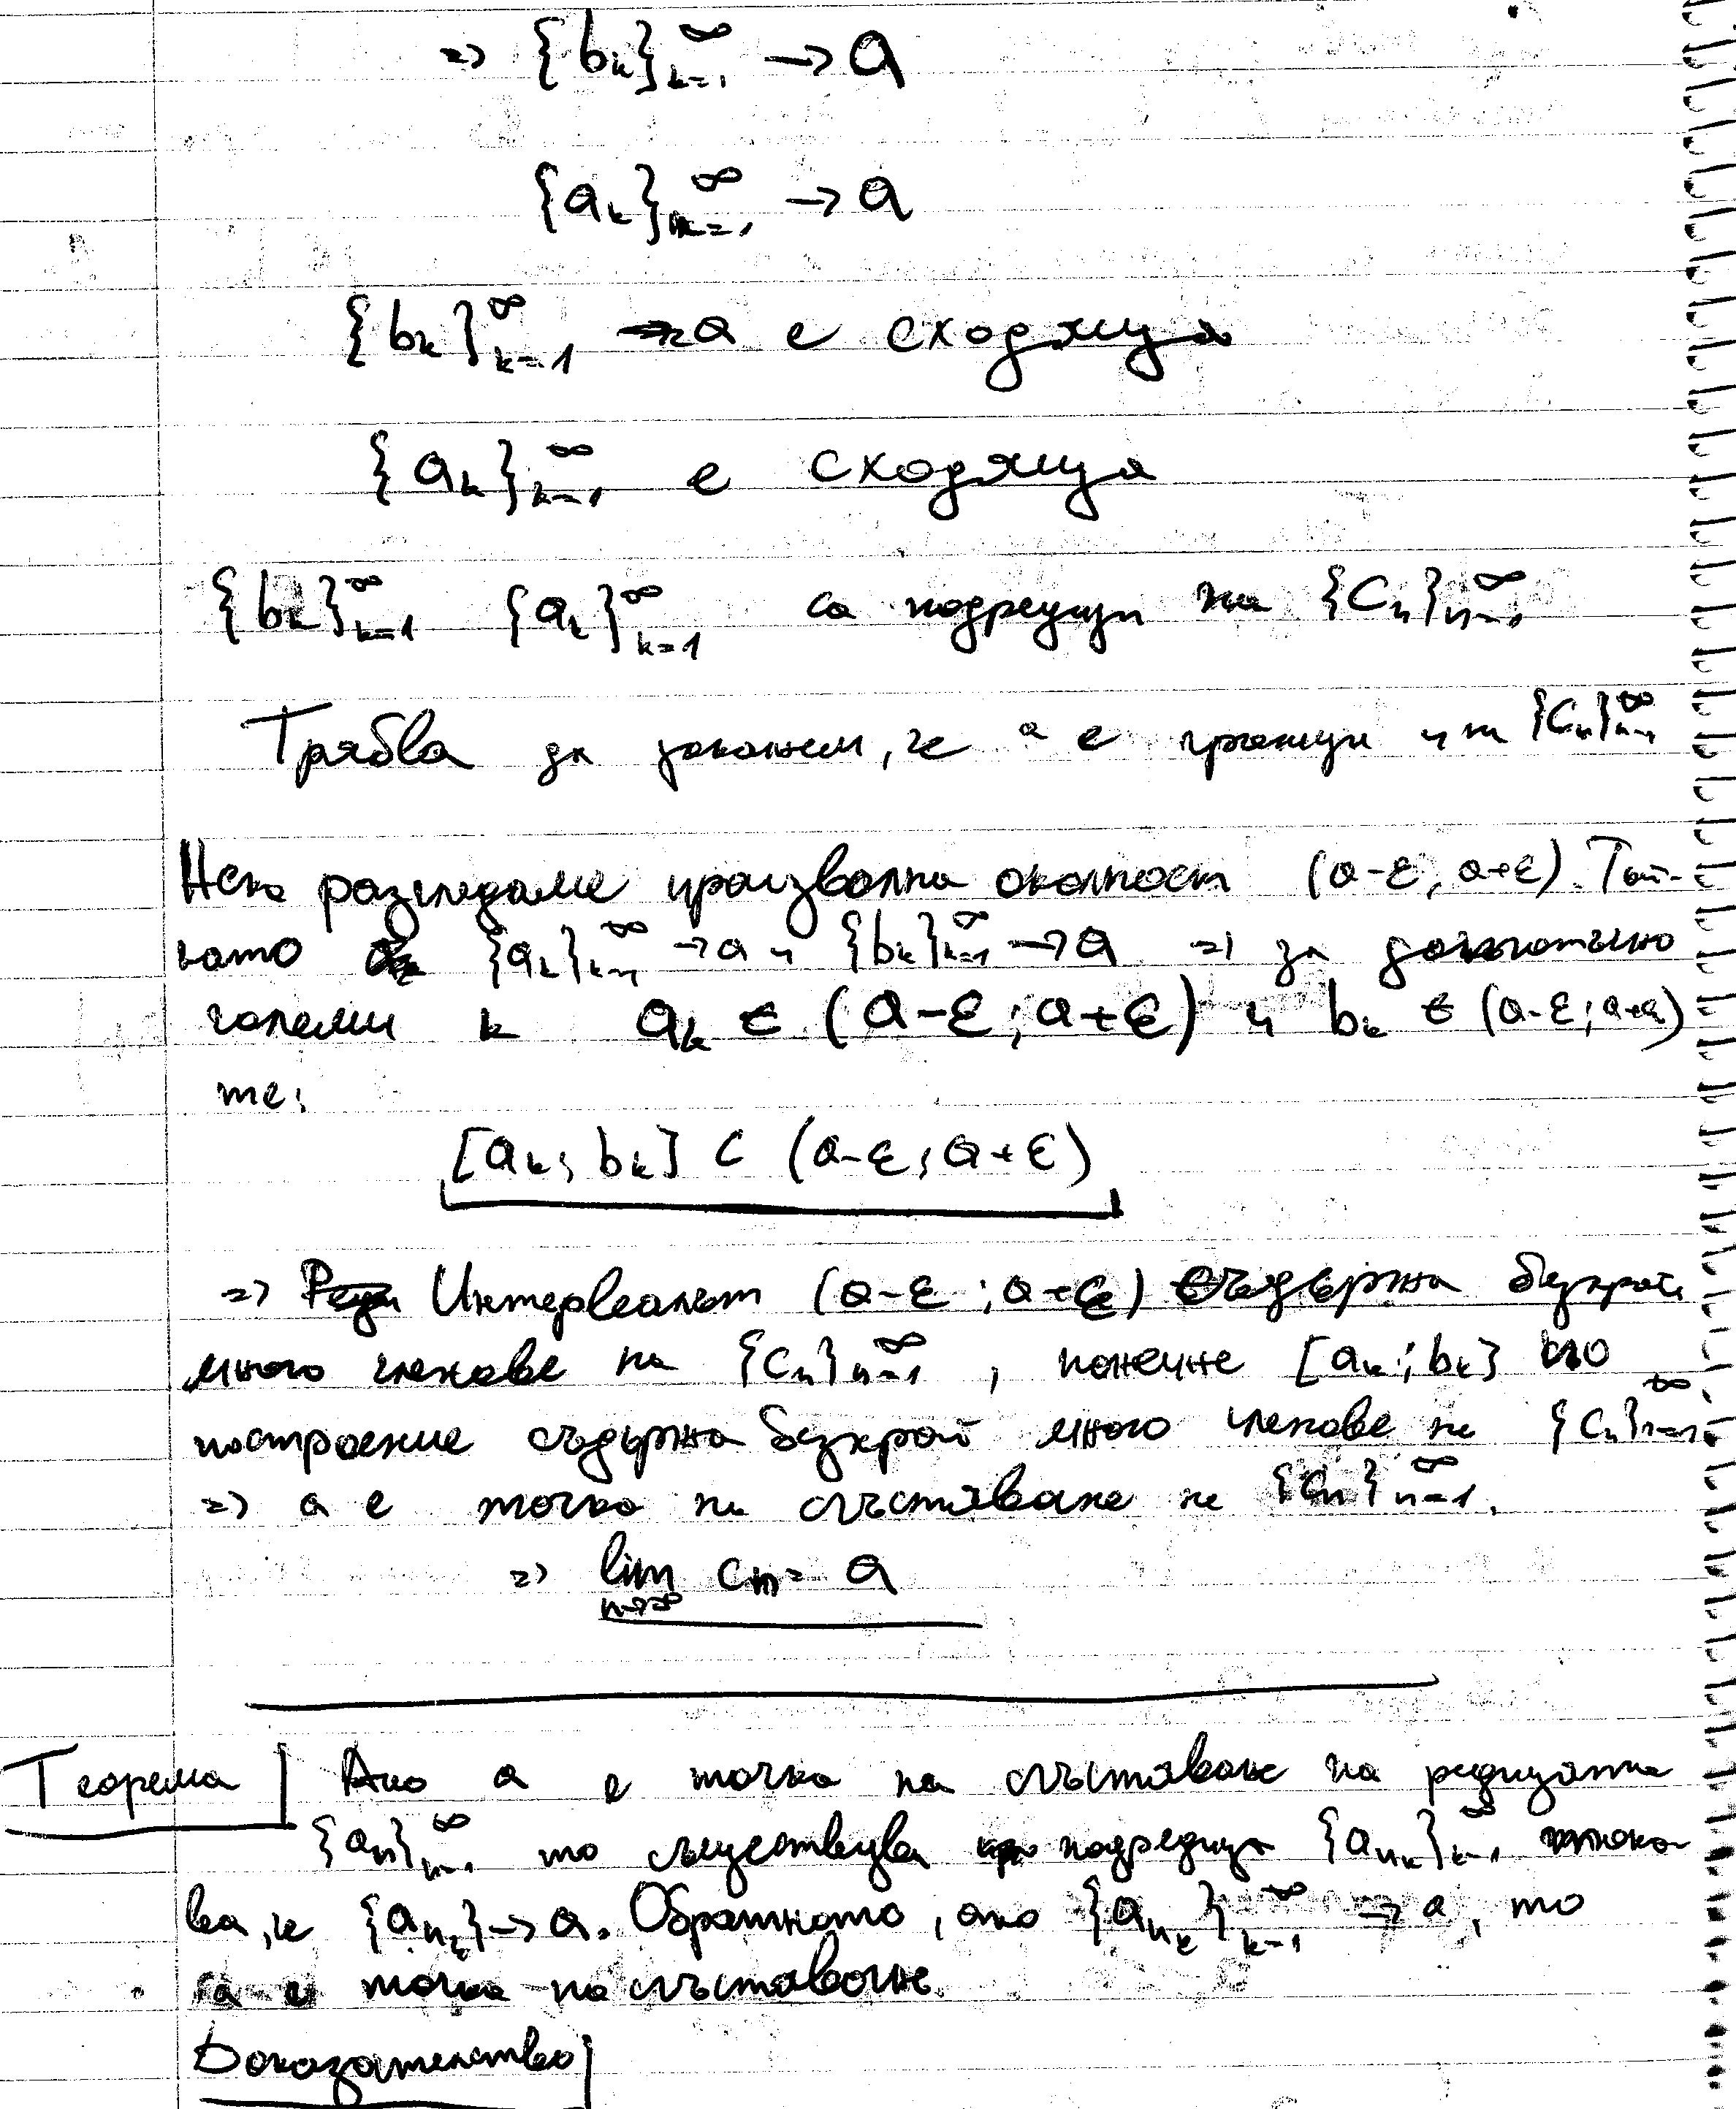 => {bₖ}ₖ₌₁^∞ → a
{aₖ}ₖ₌₁^∞ → a
{bₖ}ₖ₌₁^∞ → a е сходяща
{aₖ}ₖ₌₁^∞ е сходяща
{bₖ}ₖ₌₁^∞ {aₖ}ₖ₌₁^∞ са подредици на {Cₙ}ₙ₌₁^∞
Трябва да докажем, че a е граница на {Cₙ}ₙ₌₁^∞
Нека разгледаме произволна околност (a-ε, a+ε). Тъй-
като {aₖ}ₖ₌₁^∞ → a и {bₖ}ₖ₌₁^∞ → a => за достатъчно
големи k aₖ ∈ (a-ε; a+ε) и bₖ ∈ (a-ε; a+ε)
т.е.
[aₖ; bₖ] ⊂ (a-ε; a+ε)
=> Интервалът (a-ε; a+ε) съдържа безкрай
много членове на {Cₙ}ₙ₌₁^∞, понеже [aₖ; bₖ] по
построение съдържа безкрай много членове на {Cₙ}ₙ₌₁^∞
=> a е точка на сгъстяване на {Cₙ}ₙ₌₁^∞.
=> lim Cₙ = a
n→∞
Теорема | Ако a е точка на сгъстяване на редицата
{aₙ}ₙ₌₁^∞ то съществува подредица {aₙₖ}ₖ₌₁^∞ така-
ва, че {aₙₖ} → a. Обратното, ако {aₙₖ}ₖ₌₁^∞ → a, то
a е точка на сгъстяване.
Доказателство|